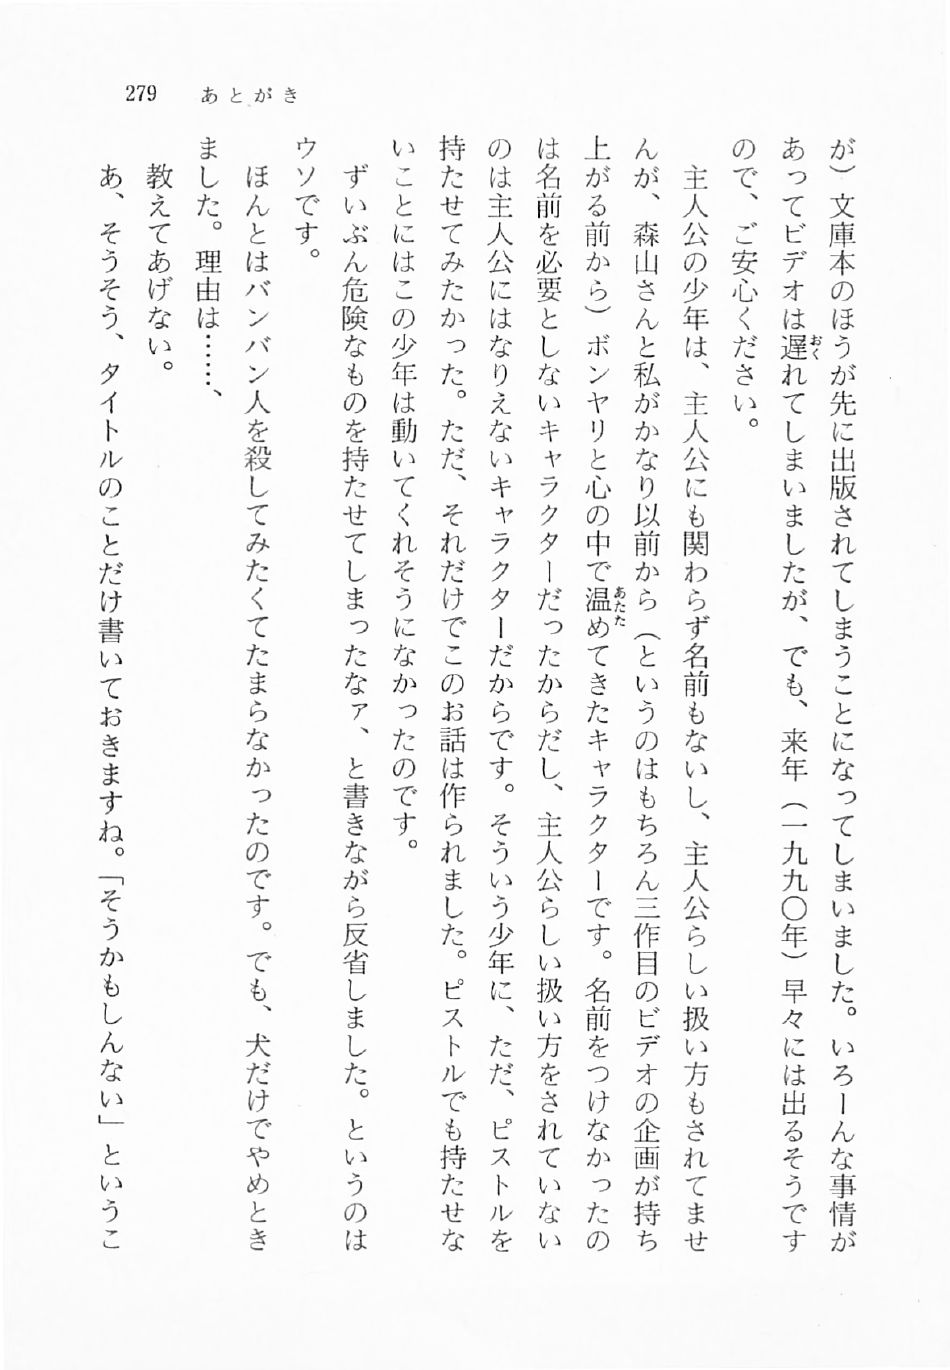 279　あとがき
が）文庫本のほうが先に出版されてしまうことになってしまいました。いろーんな事情が
あってビデオは遅れてしまいましたが、でも、来年（一九九〇年）早々には出るそうです
おく
ので、ご安心ください。
　主人公の少年は、主人公にも関わらず名前もないし、主人公らしい扱い方もされてませ
んが、森山さんと私がかなり以前から（というのはもちろん三作目のビデオの企画が持ち
上がる前から）ボンヤリと心の中で温めてきたキャラクターです。名前をつけなかったの
あたた
は名前を必要としないキャラクターだったからだし、主人公らしい扱い方をされていない
のは主人公にはなりえないキャラクターだからです。そういう少年に、ただ、ピストルを
持たせてみたかった。ただ、それだけでこのお話は作られました。ピストルでも持たせな
いことにはこの少年は動いてくれそうになかったのです。
　ずいぶん危険なものを持たせてしまったなァ、と書きながら反省しました。というのは
ウソです。
　ほんとはバンバン人を殺してみたくてたまらなかったのです。でも、犬だけでやめとき
ました。理由は……、
　教えてあげない。
　あ、そうそう、タイトルのことだけ書いておきますね。「そうかもしんない」というこ